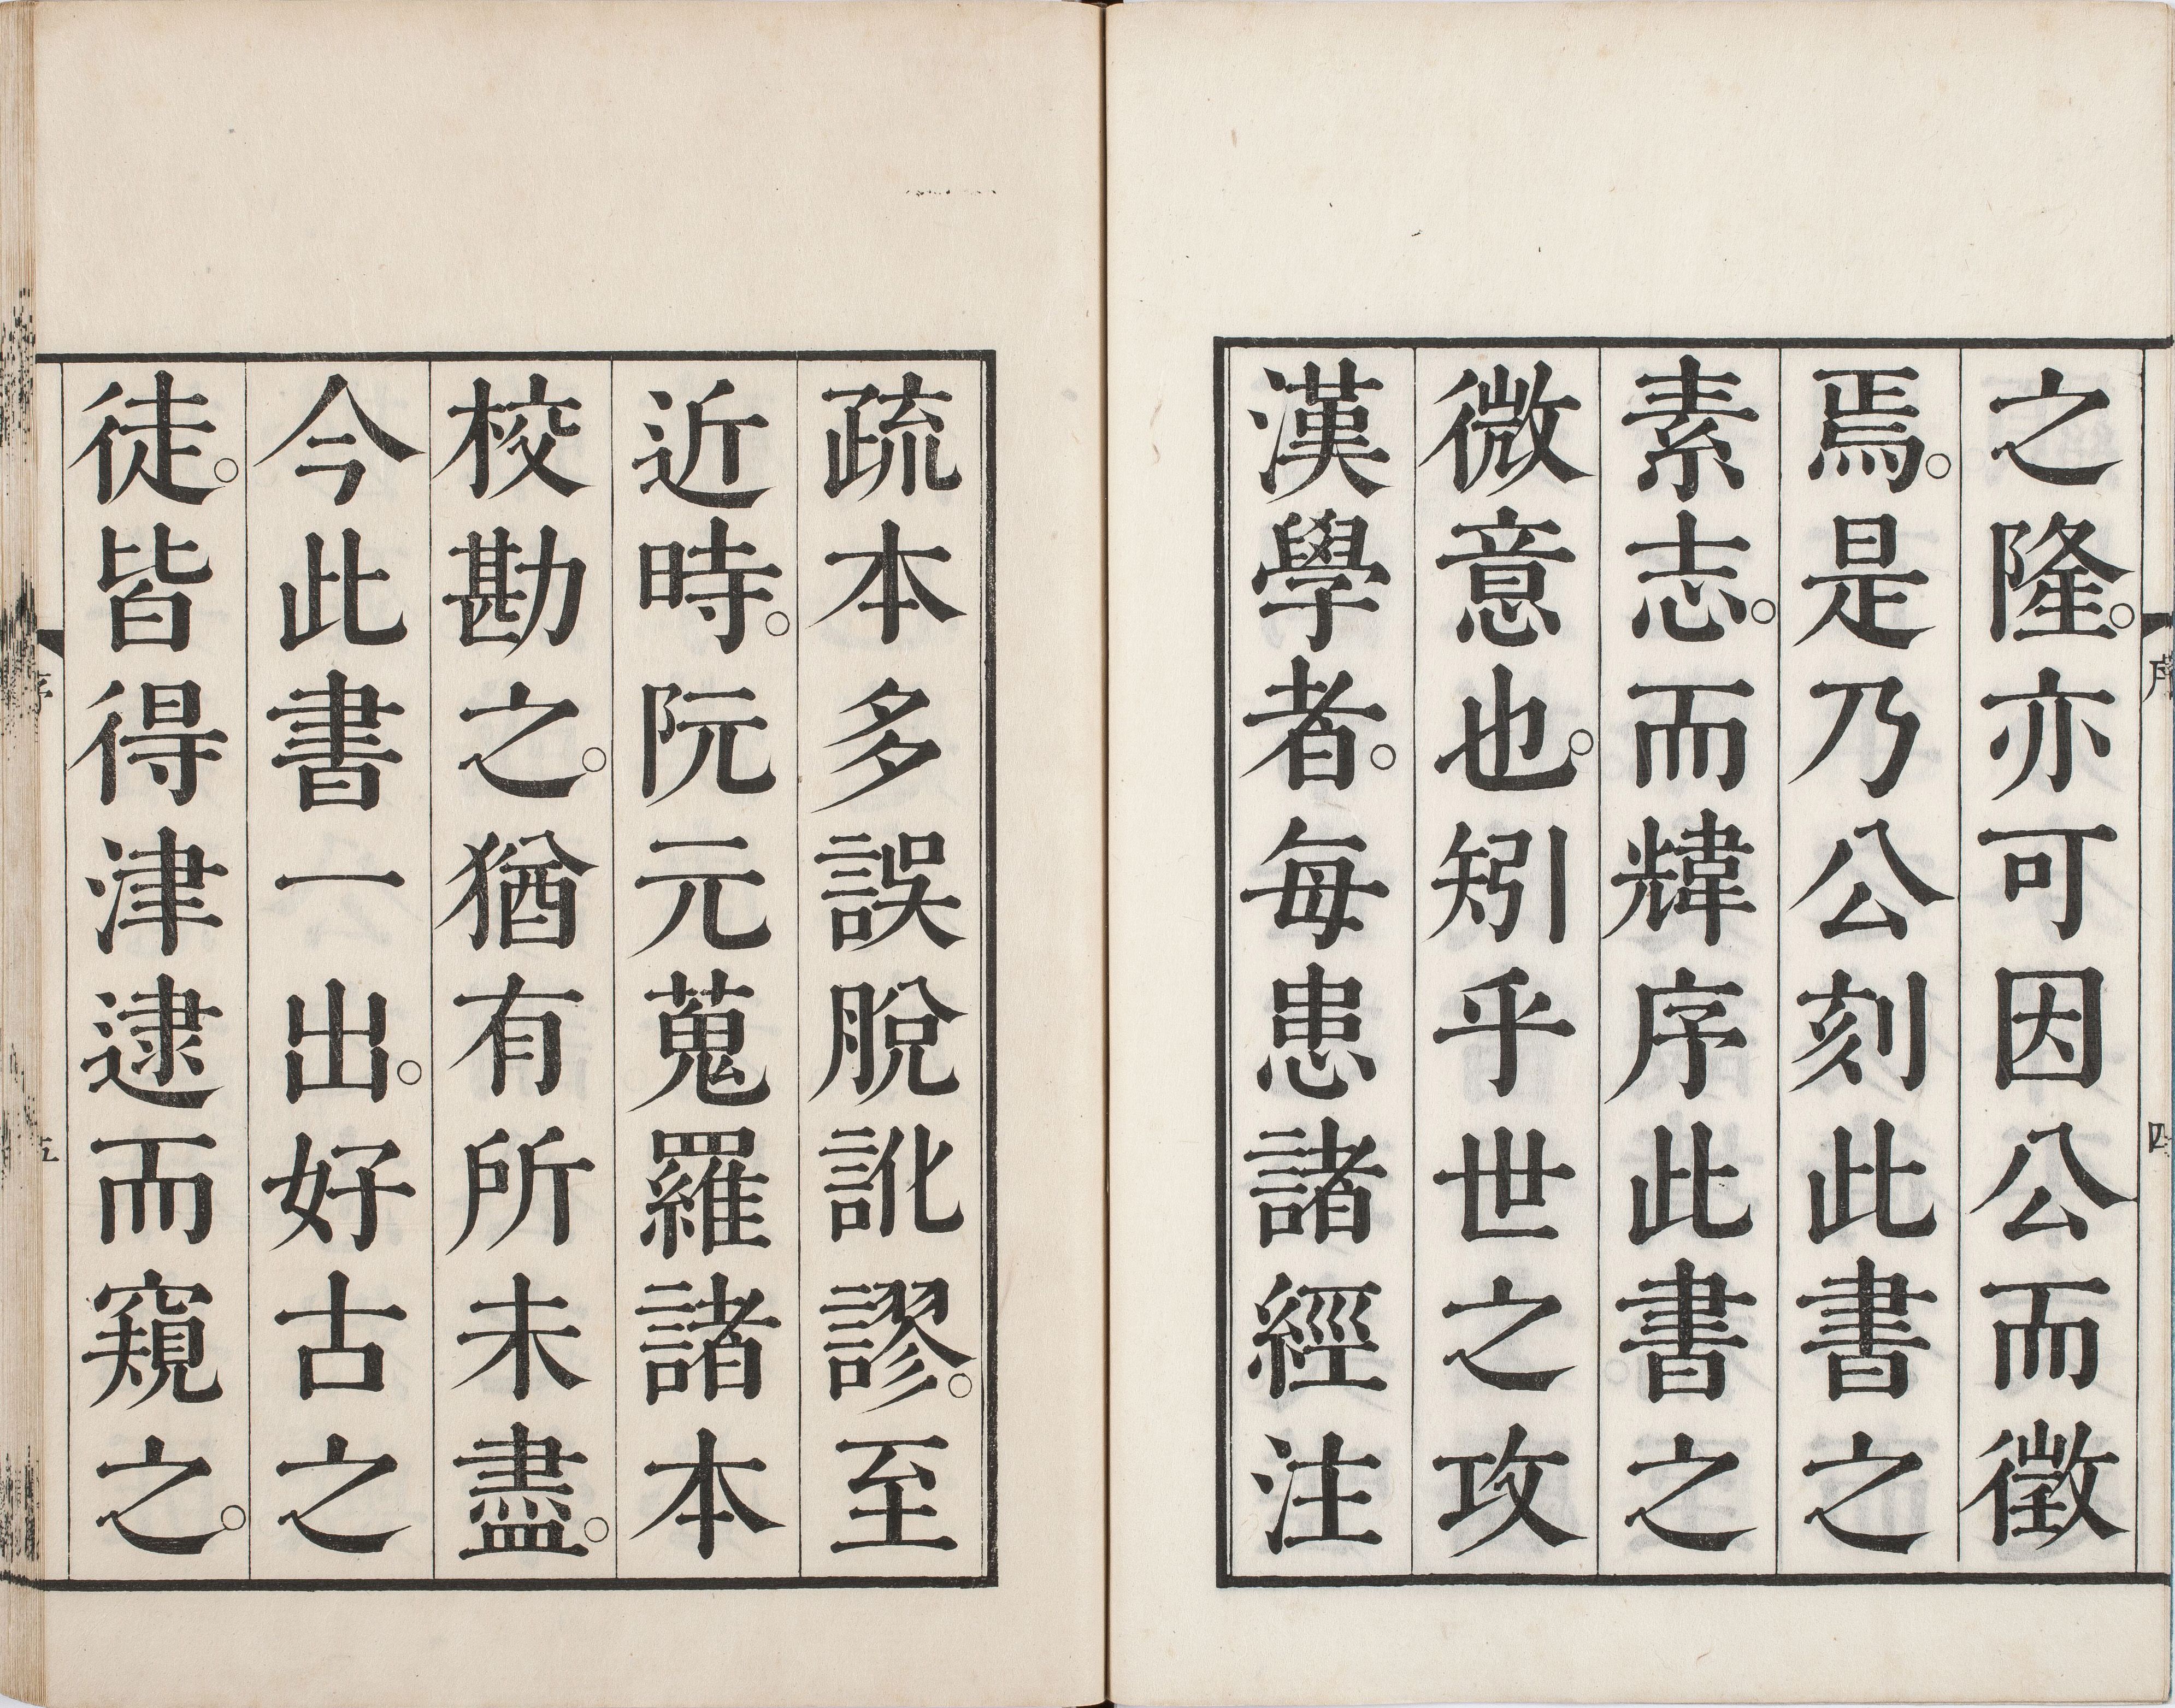 之隆。亦可因公而徵
焉。是乃公刻此書之
素志。而煒序此書之
微意也。矧乎世之攻
漢學者。每患諸經注
疏本多誤脫訛謬。至
近時。阮元蒐羅諸本
校勘之。猶有所未盡。
今此書一出。好古之
徒。皆得津逮而窺之。
序
四
五